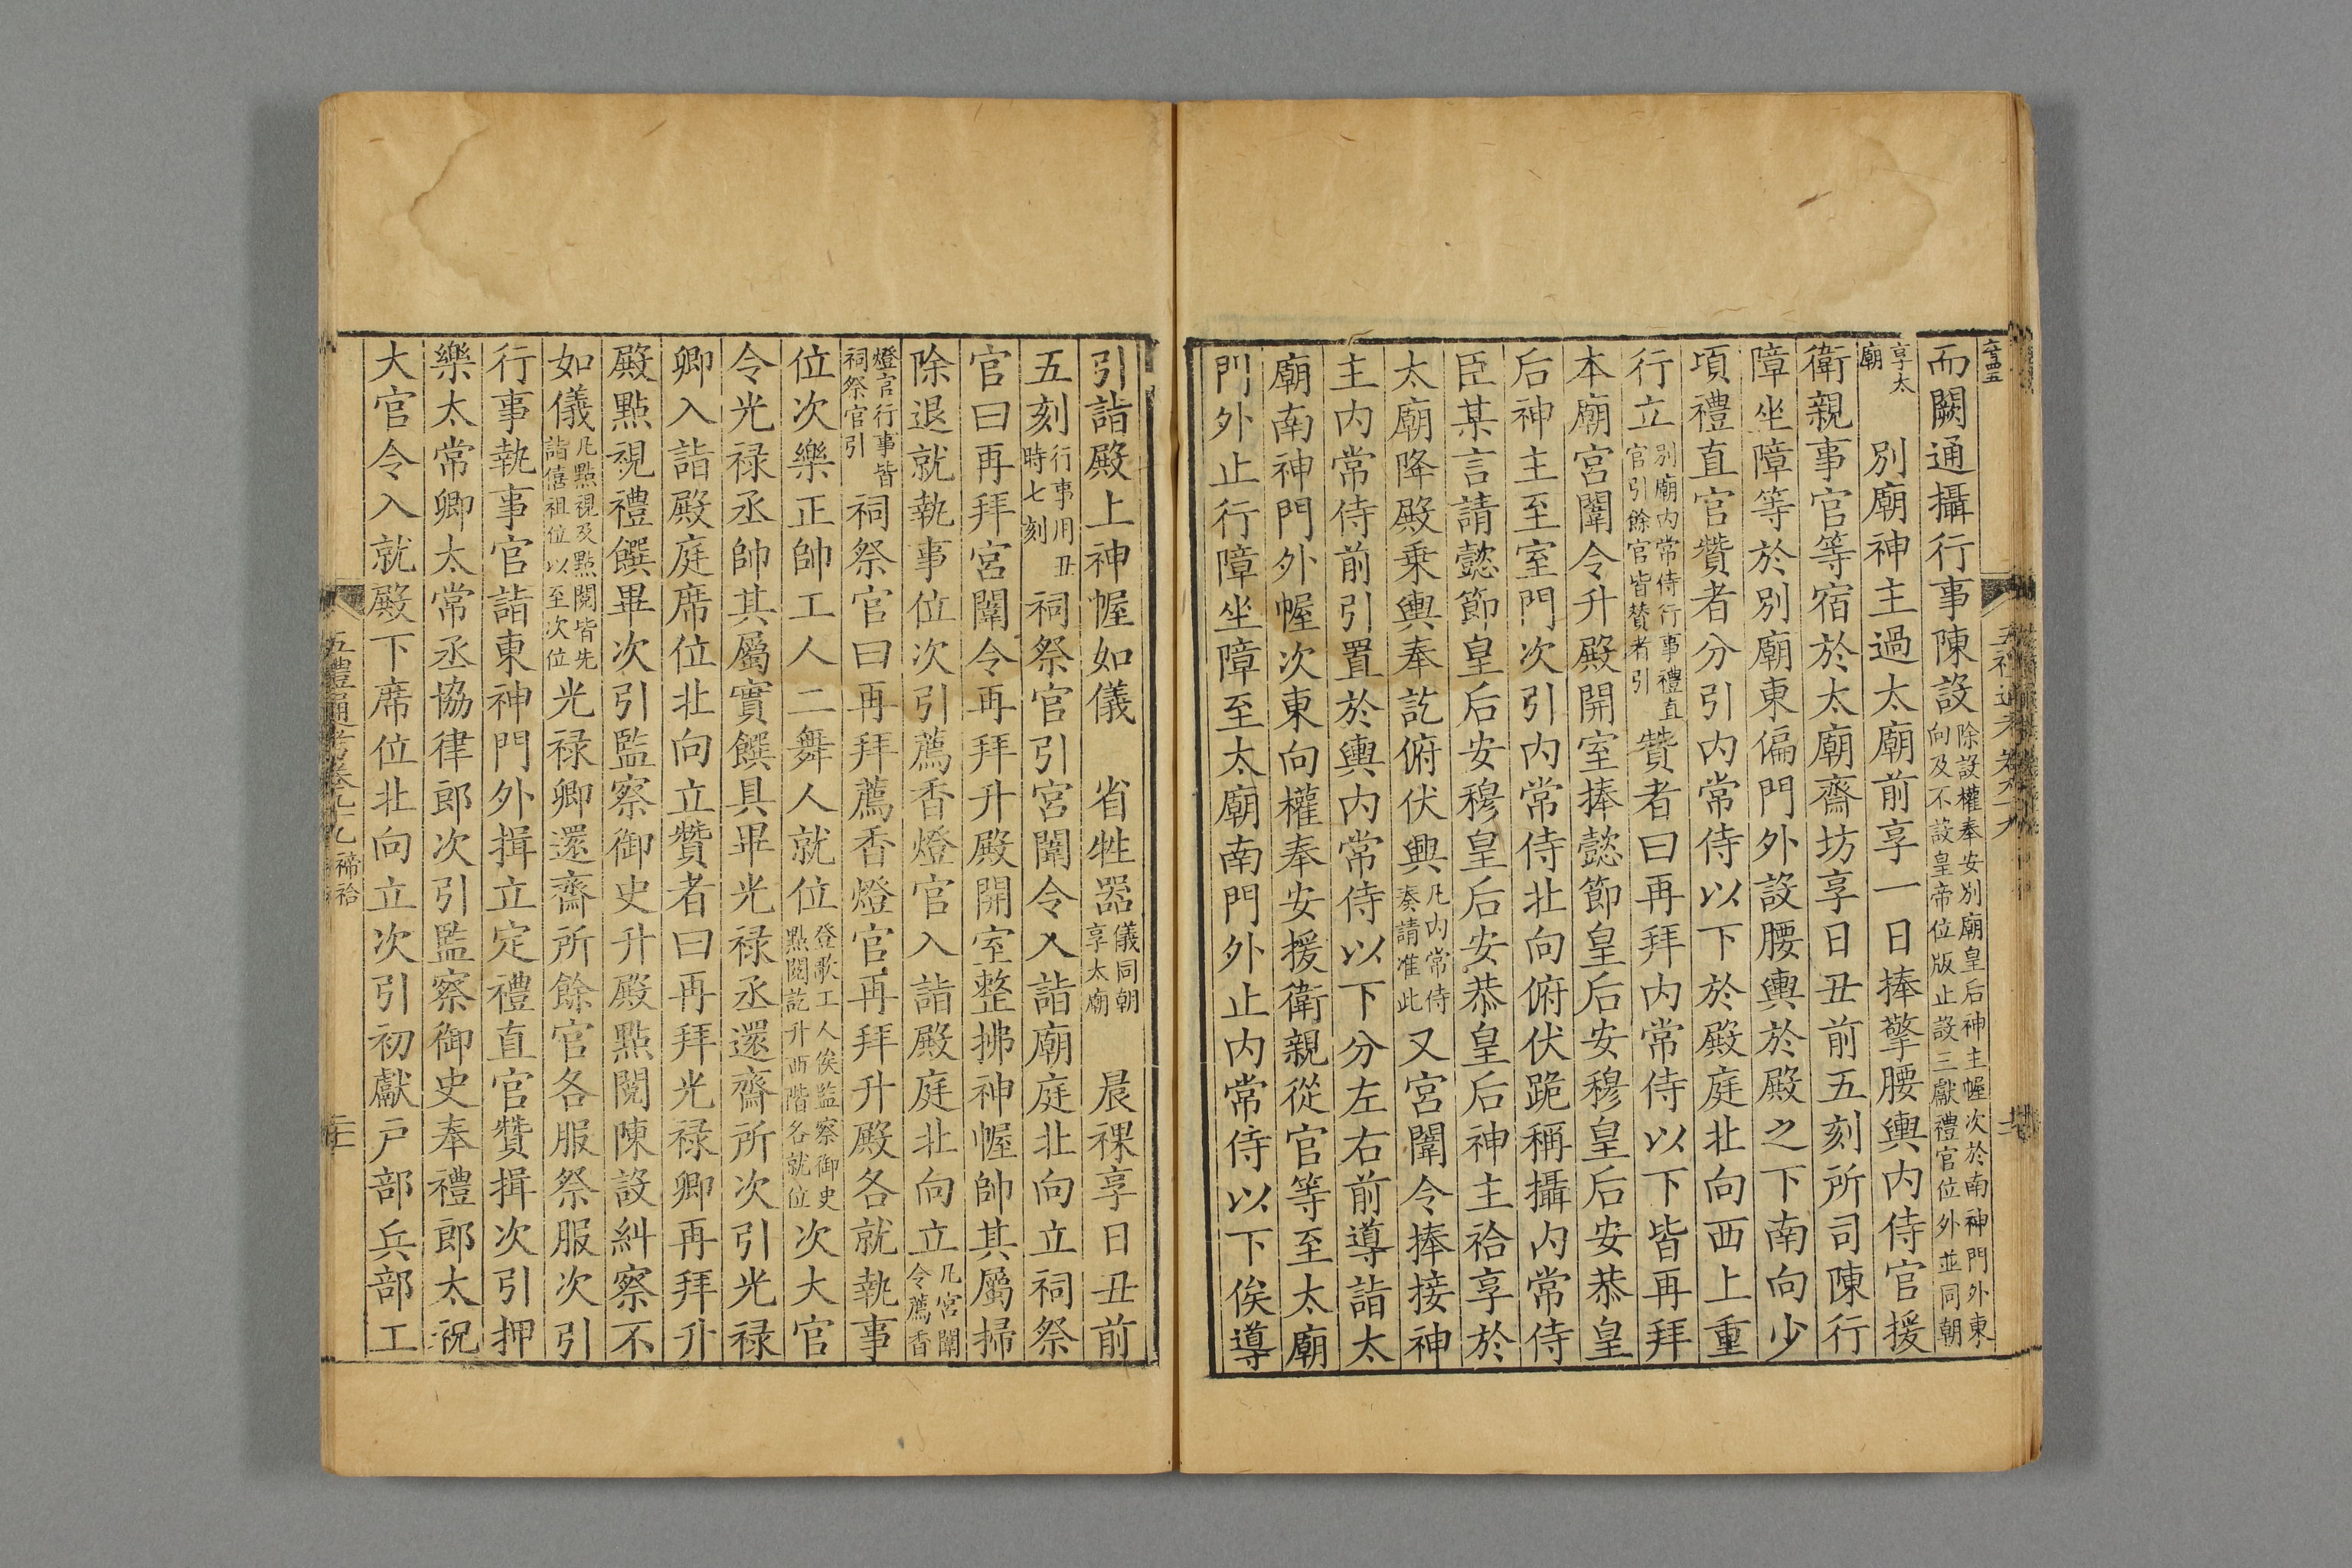 而闕通攝行事陳設除設權奉安別廟皇后神主幄次於南神門外東向及不設皇帝位版止設三獻禮官位外並同朝
享太廟 別廟神主過太廟前享一日捧擎腰輿內侍官援
衛親事官等宿於太廟齋坊享日丑前五刻所司陳行
障坐障等於別廟東偏門外設腰輿於殿之下南向少
項禮直官贊者分引內常侍以下於殿庭北向西上重
行立別廟內常侍行事禮直官引餘官皆贊者引贊者曰再拜內常侍以下皆再拜
本廟宮闈令升殿開室捧懿節皇后安穆皇后安恭皇
后神主至室門次引內常侍北向俯伏跪稱攝內常侍
臣某言請懿節皇后安穆皇后安恭皇后神主祫享於
太廟降殿乗輿奉訖俯伏興凡內常侍奏請准此又宮闈令捧接神
主內常侍前引置於輿內常侍以下分左右前導詣太
廟南神門外幄次東向權奉安援衛親從官等至太廟
門外止行障坐障至太廟南門外止內常侍以下俟導
引詣殿上神幄如儀 省牲器儀同朝享太廟 晨祼享日丑前
五刻行事用丑時七刻祠祭官引宮闈令入詣廟庭北向立祠祭
官曰再拜宮闈令再拜升殿開室整拂神幄帥其屬掃
除退就執事位次引薦香燈官入詣殿庭北向立凡宮闈令薦香
燈官行事皆祠祭官引祠祭官曰再拜薦香燈官再拜升殿各就執事
位次樂正帥工人二舞人就位登歌工人俟監察御史點閱訖升西階各就位次大官
令光禄丞帥其屬實饌具畢光禄丞還齋所次引光禄
卿入詣殿庭席位北向立贊者曰再拜光禄卿再拜升
殿點視禮饌畢次引監察御史升殿點閱陳設糾察不
如儀凡點視及點閱皆先詣僖祖位以至次位光禄卿還齋所餘官各服祭服次引
行事執事官詣東神門外揖立定禮直官贊揖次引押
樂太常卿太常丞協律郎次引監察御史奉禮郎太祝
大官令入就殿下席位北向立次引初獻戶部兵部工
五禮通考卷九十九 禘祫